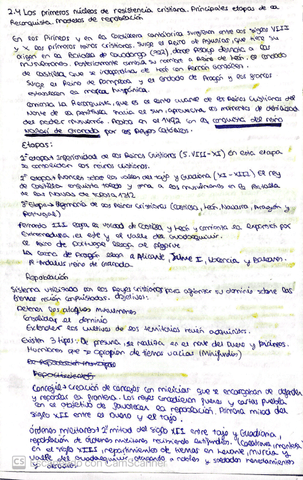 2.4 Los primeros núcleos de resistencia cristiana. Principales etapas de la
Reconquista. Modelos de repoblación
En los Pirineos y en la Cordillera Cantábrica surgieron entre los siglos VIII
y X los primeros reinos cristianos. Surge el Reino de Asturias, que tiene su
origen en la Batalla de Covadonga (722), donde Pelayo derrota a los
musulmanes. Posteriormente cambia su nombre a Reino de León. El condado
de Castilla que se independiza de León con Fernán González.
Surge el Reino de Pamplona y el Condado de Aragón y los francos
establecen la marca hispánica.
Comienza la Reconquista, que es el lento avance de los Reinos cristianos del
norte de la península hacia el sur, aprovechan los momentos de debilidad
del poder musulmán. Acaba en 1492 con la conquista del reino
nazarí de Granada por los Reyes Católicos.
Etapas:
1ª etapa → Inferioridad de los Reinos Cristianos (S. VIII-XI) en esta etapa
se consolidan los reinos cristianos.
2ª etapa → Avances sobre los valles del Tajo y Guadiana (XI - XIII). El rey
de Castilla Toledo y a los musulmanes en la Batalla
de las Navas de Tolosa 1212
3ª etapa → Hegemonía de los Reinos Cristianos (Castilla, León, Navarra, Aragón y
Portugal)
Fernando III la de Castilla y León y
Extremadura, el este y el valle del Guadalquivir.
El Reino de Portugal llega al Algarve
La corona de Aragón llega a Alicante, Jaime I, Valencia y Baleares.
Al-Andalus reino de Granada.
Repoblación
Sistema utilizado por los Reyes cristianos para afianzar su dominio sobre las
tierras recién conquistadas. Objetivos:
Detener los ataques musulmanes
Consolidar el dominio
Extender los cultivos de los territorios recién adquiridos.
Existen 3 tipos: De presura, se realiza en el norte del Duero y Pirineos.
Hombres que se apropian de tierras vacías (Minifundios)
Concejil → Creación de concejos con milicias que se encargaban de defender
y repoblar la frontera. Los reyes concedieron fueros y cartas puebla
con el objetivo de favorecer la repoblación, primera mitad del
siglo XII entre el Duero y el Tajo.
Órdenes militares → 2ª mitad del siglo XII entre Tajo y Guadiana,
repoblación de órdenes militares recibiendo latifundios.
en el siglo XIII, repartimiento de tierras en Levante, Murcia y
Valle del Guadalquivir, otorgando a nobles y
CS Escaneado con CamScanner